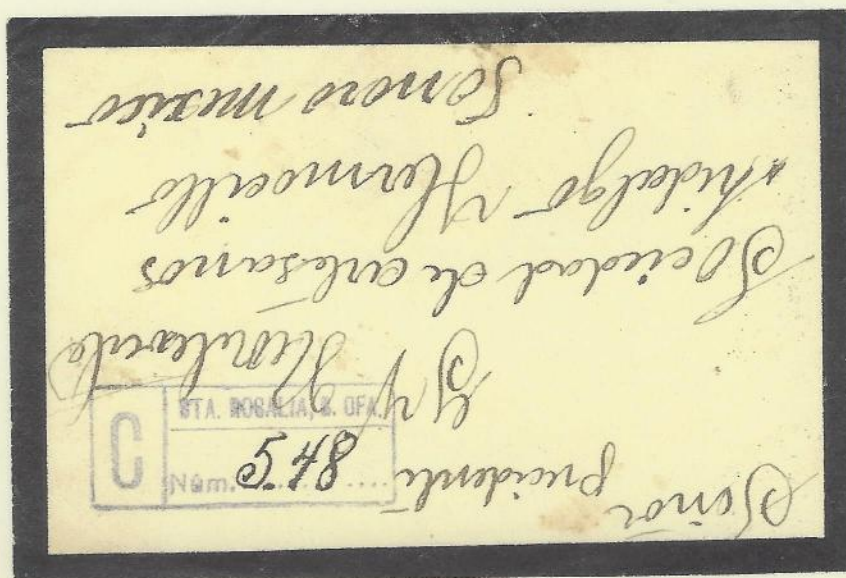 Señor
precidenti
Sociedad de artesanos
Hidalgo Hermocillo
Sonoro mexico
C
STA. ROSALIA, B. OFA.
Núm. 548